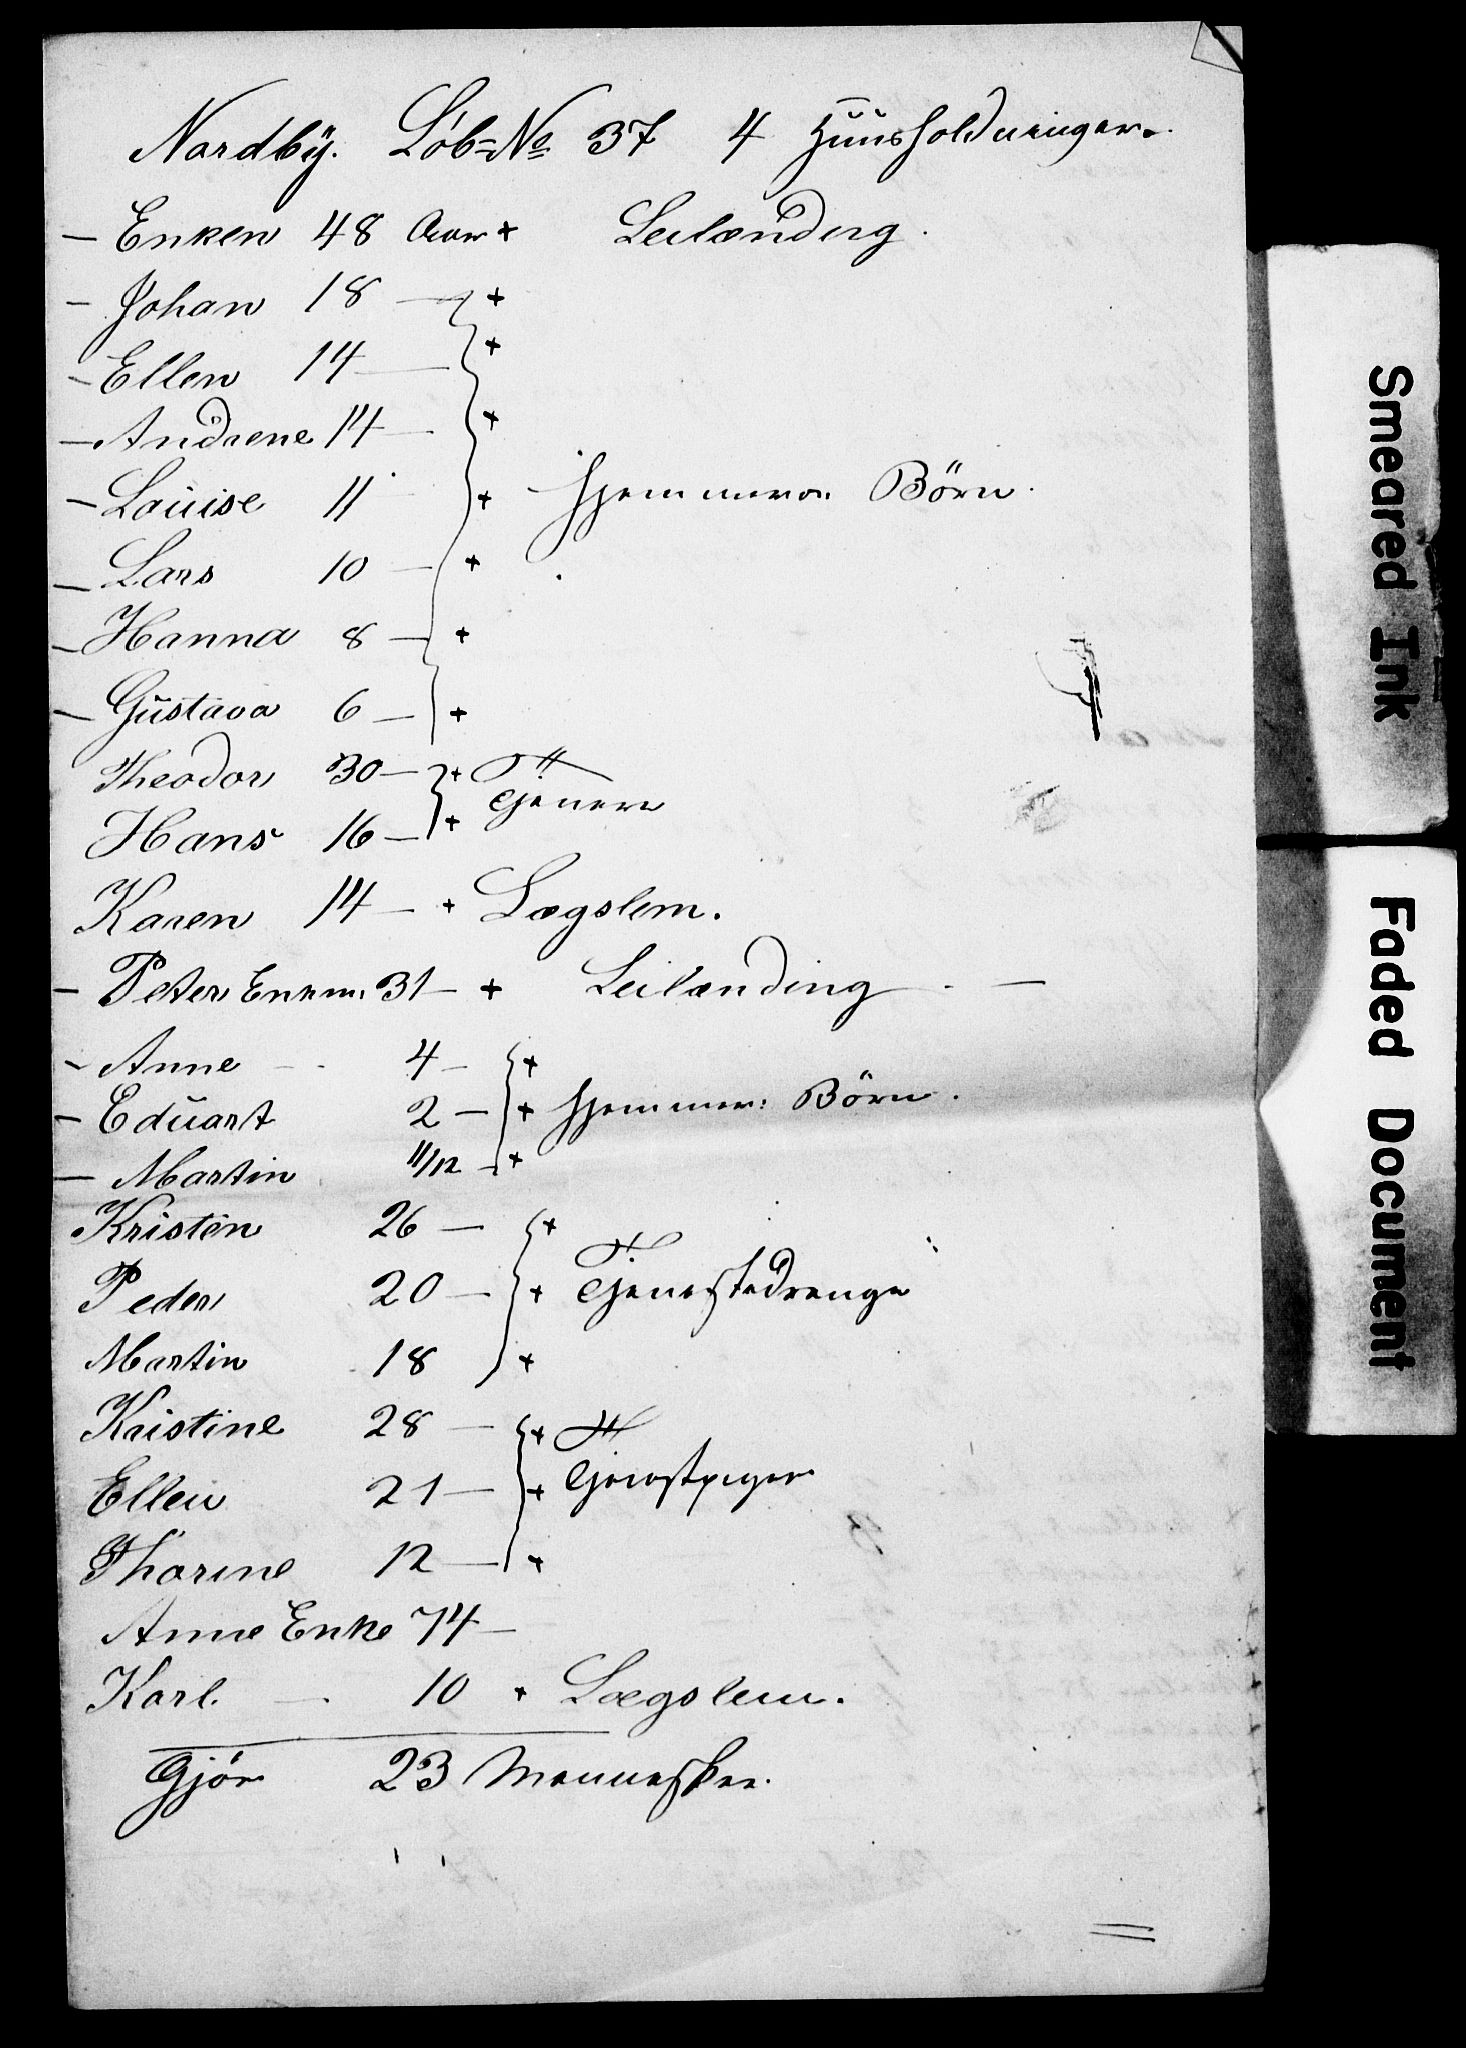 Nordby. Løb=No 37 4 Huusholdninger.
— Enken 48 Aar + Leilænding.
— Johan 18 — +
— Ellen 14 — +
— Andrene 14 — +
— Louise 11 — + hjemmevær. Börn.
— Lars 10 — +
— Hanna 8 — +
— Gustava 6 — +
Theodor 30 — +
Tjenere
Hans 16 — +
Karen 14 — + Lægslem.
— Peter Enkm: 31 — + Leilænding. —
— Anne 4 — +
— Eduart 2 — + hjemmev: Börn.
— Martin 11/12 — +
Kristen 26 — +
Peder 20 — + Tjenestedrenge
Martin 18 +
Kristine 28 — +
Ellen 21 — + Tjenestpiger
Thorine 12 — +
Anne Enke 74 —
Karl. — 10 + Lægslem.
Gjör 23 Mennesker.
Smeared Ink
Faded Document